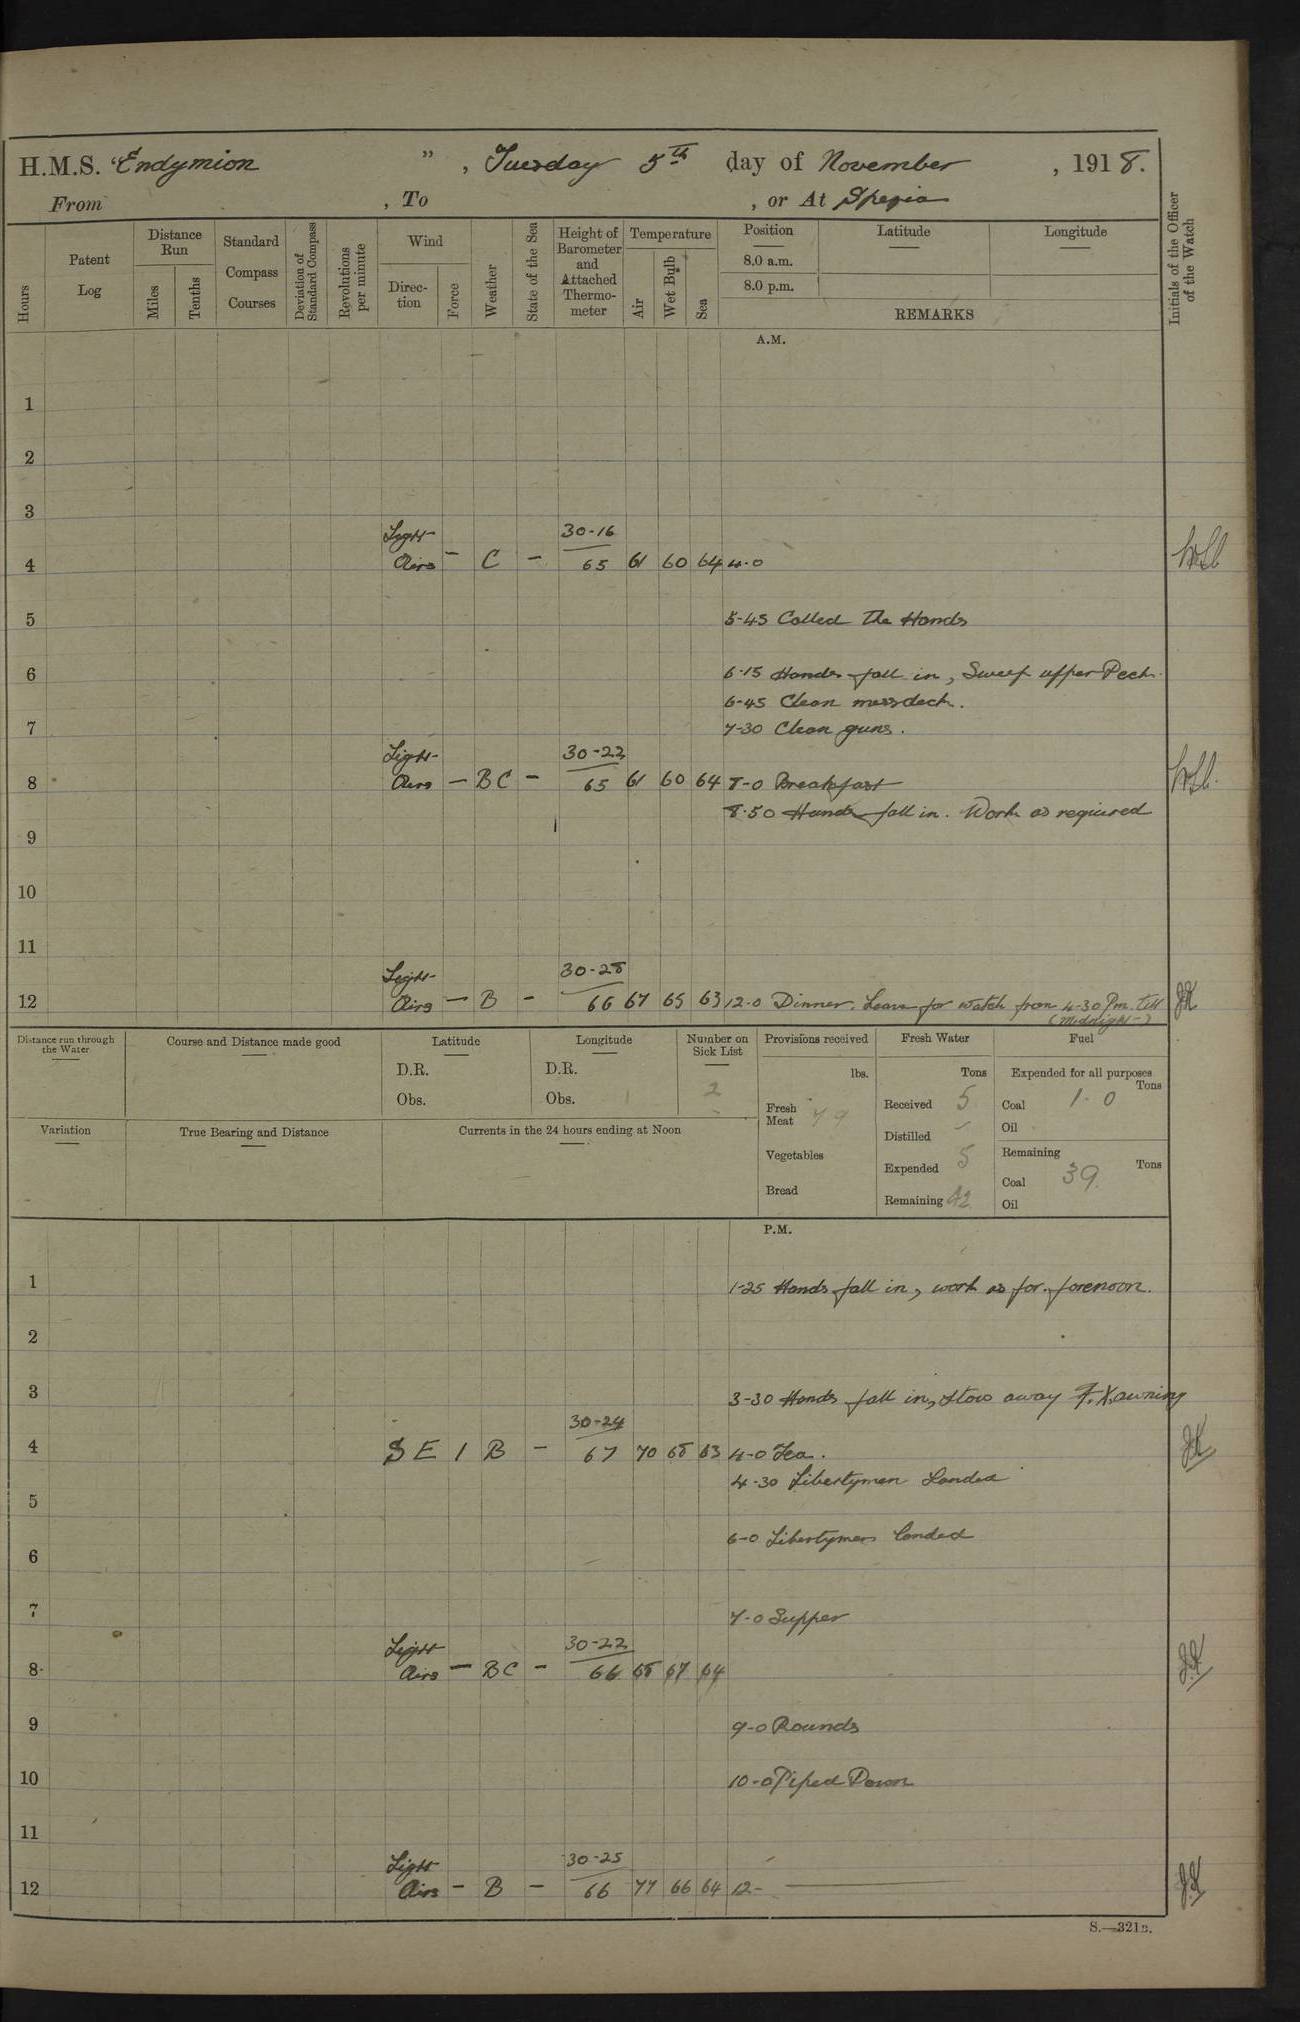 H.M.S. "Endymion", Tuesday 5th day of November, 1918.
From , To , or At Spezia
Hours
Patent Log
Distance Run
Miles
Tenths
Standard Compass Courses
Deviation of Standard Compass
Revolutions per minute
Wind
Direction
Force
Weather
State of the Sea
Height of Barometer and Attached Thermometer
Temperature
Air
Wet Bulb
Sea
Position
8.0 a.m.
8.0 p.m.
Latitude
Longitude
REMARKS
Initials of the Officer of the Watch
A.M.
1
2
3
Light 30-16
4 Airs - C - 65 61 60 64 4-0
5 5-45 Called the Hands
6 6-15 Hands fall in, Sweep upper Deck.
6-45 Clean messdeck.
7 7-30 Clean guns.
Light 30-22
8 Airs - BC - 65 61 60 64 8-0 Breakfast
8-50 Hands fall in. Work as required
9
10
11
Light 30-28
12 Airs - B - 66 67 65 63 12-0 Dinner. Leave for watch from 4-30 Pm. till
(Midnight-)
Distance run through the Water
Course and Distance made good
Latitude
D.R.
Obs.
Longitude
D.R.
Obs.
Number on Sick List
2
Variation
True Bearing and Distance
Currents in the 24 hours ending at Noon
Provisions received
lbs.
Fresh Meat 79
Vegetables
Bread
Fresh Water
Tons
Received 5
Distilled -
Expended 5
Remaining 42
Fuel
Expended for all purposes
Tons
Coal 1.0
Oil
Remaining
Tons
Coal 39
Oil
P.M.
1 1-25 Hands fall in, work as for forenoon.
2
3 3-30 Hands fall in, stow away F.X. awning
30-24
4 S E 1 B - 67 70 68 63 4-0 Tea. JK
4-30 Libertymen Landed
5
6-0 Libertymen landed
6
7 7-0 Supper
Light 30-22
8 Airs - BC - 66 68 67 64 JK
9 9-0 Rounds
10 10-0 Piped Down
11
Light 30-25
12 Airs - B - 66 77 66 64 12- JK
S.—321B.